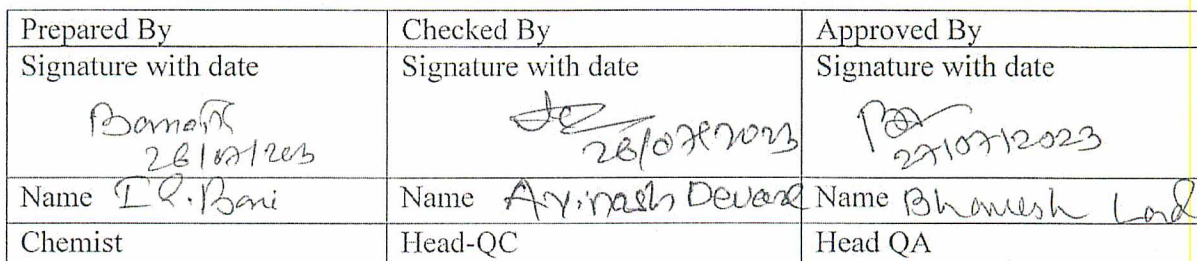 Prepared By Checked By Approved By
Signature with date Signature with date Signature with date
26/07/2023 26/07/2023 27/07/2023
Name I.R. Bari Name Avinash Devare Name Bhavesh Lad
Chemist Head-QC Head QA